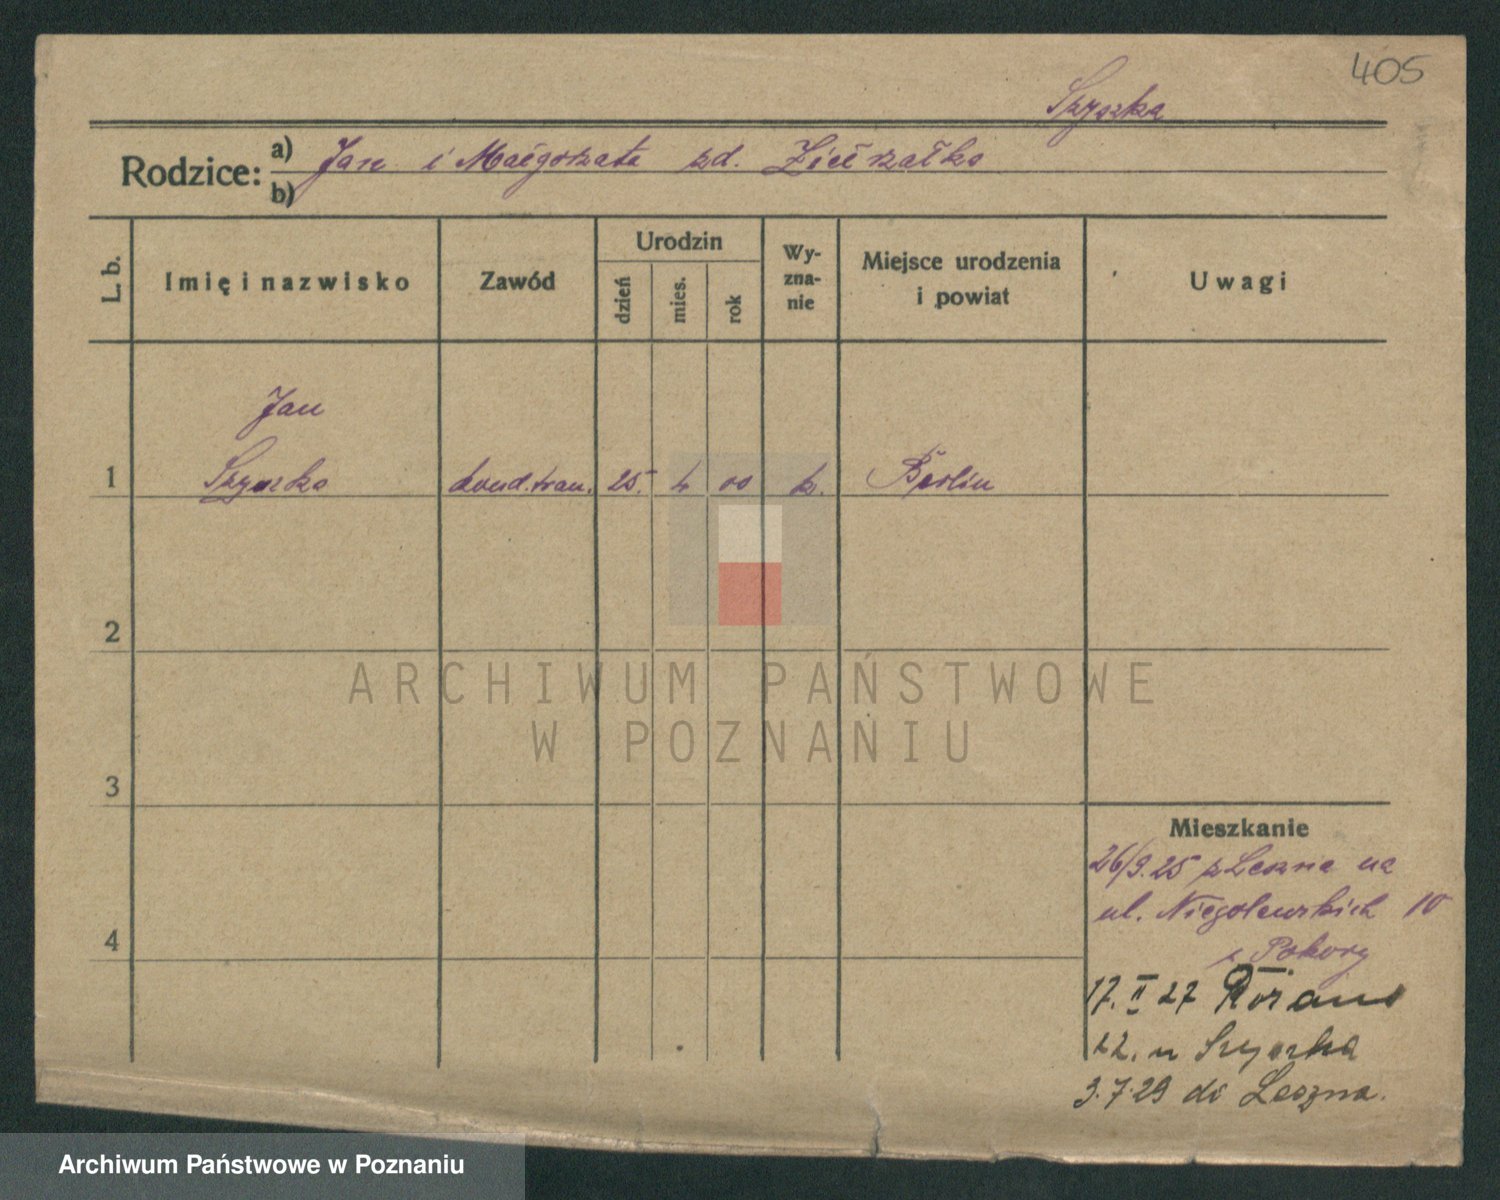 405
Szyszka
Rodzice: a) Jan i Małgorzata zd.
b)
L. b. Imię i nazwisko Zawód Urodzin dzień mies. rok Wyznanie Miejsce urodzenia i powiat Uwagi
Jan
1 Szyszka kond. tram. 25. 4 00 k. Berlin
2
3
4
Mieszkanie
26/9.25 z Leszna na
ul. Niegolewskich 10
Pokory
17. II 27 Różana
22. u Szyszka
3.7.29 do Leszna.
ARCHIWUM PAŃSTWOWE
W POZNANIU
Archiwum Państwowe w Poznaniu